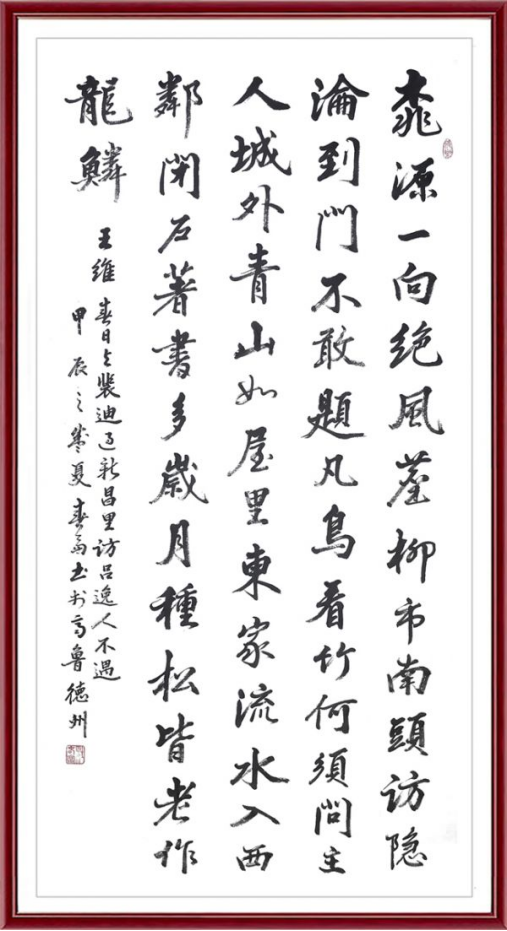 桃源一向绝風塵柳市南頭访隐
淪到門不敢題凡鳥看竹何須問主
人城外青山如屋里東家流水入西
鄰閉戶著書多歲月種松皆老作
龍鱗
王維 春日与裴迪过新昌里访吕逸人不遇
甲辰之 夏 书於 鲁德州